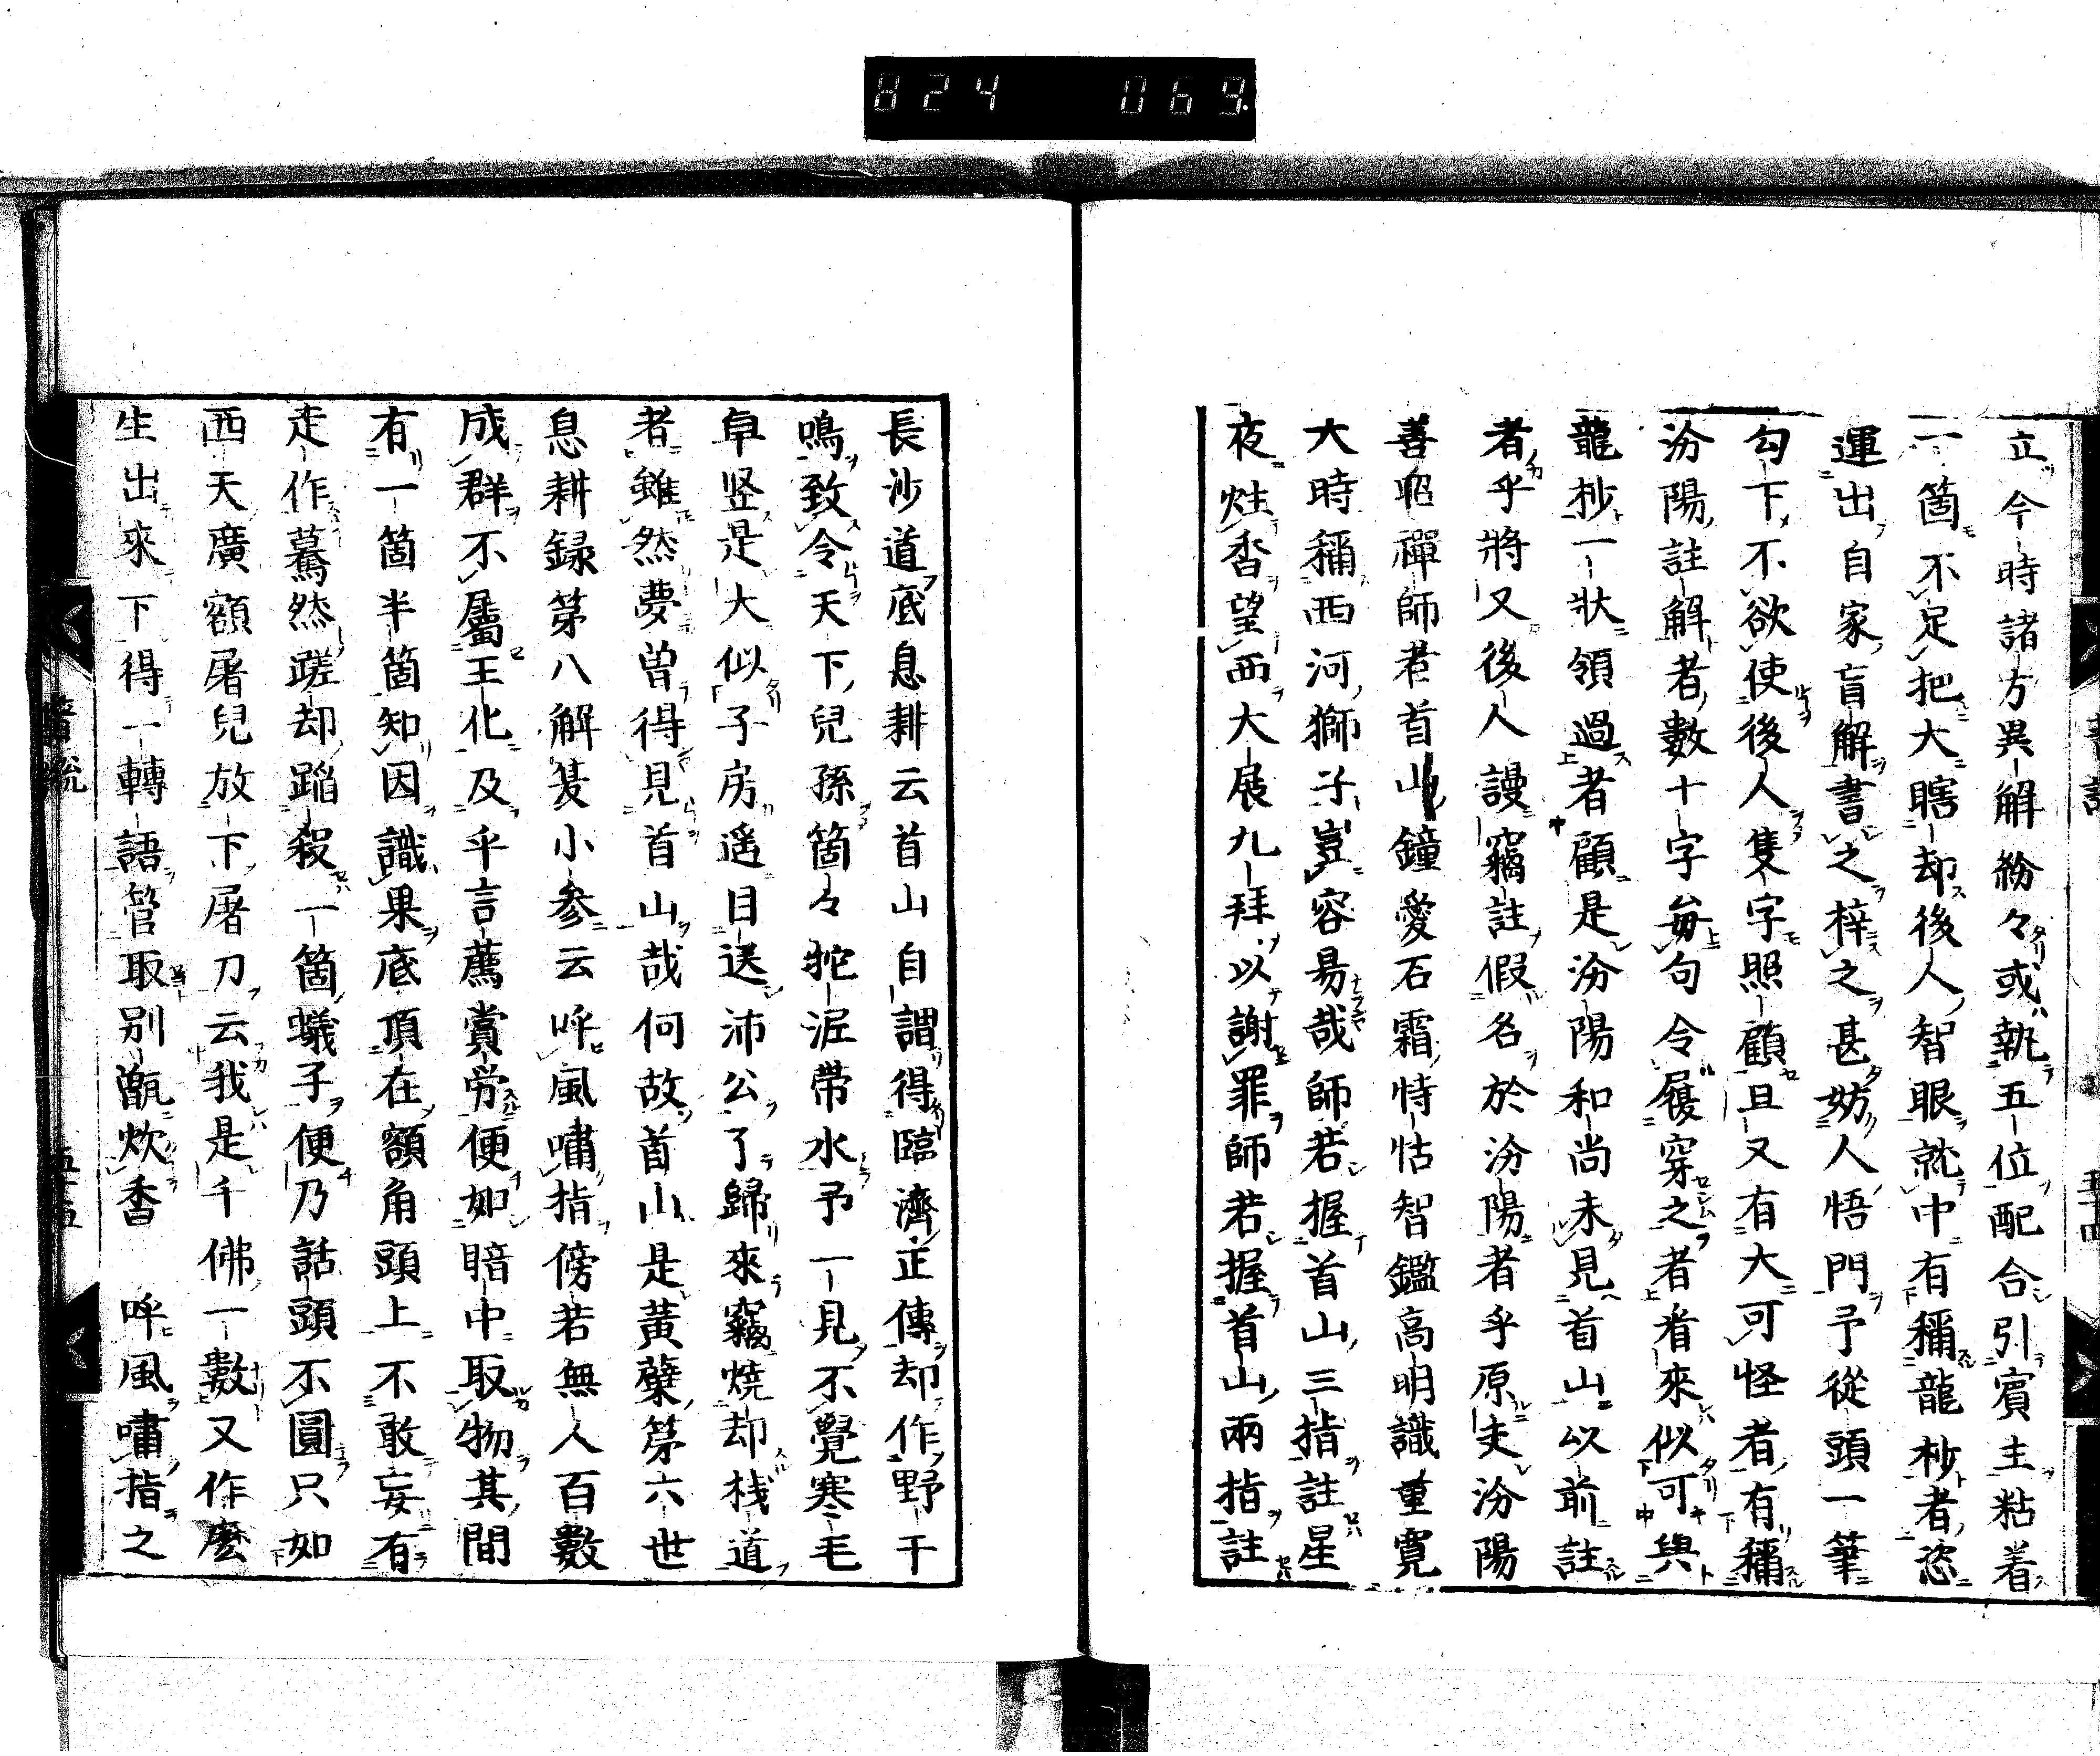 824 069.
立今時諸方異解紛々或執五位配合引賓主粘着
一箇不足把大瞎却後人智眼就中有稱龍杪者恣
運出自家盲解書之梓之甚妨人悟門予從頭一筆
勾下不欲使後人隻字照顧且又有大可怪者有稱
汾陽註解者數十字每句令履穿之者看來似可與
龍杪一狀領過者顧是汾陽和尚未見首山以前註
者乎將又後人謾竊註假名於汾陽者乎原夫汾陽
善昭禪師君首山鐘愛石霜恃怙智鑑高明識量寬
大時稱西河獅子豈容易哉師若握首山三指註星
夜炷香望西大展九拜以謝罪師若握首山兩指註
長沙道底息耕云首山自謂得臨濟正傳却作野干
鳴致令天下兒孫箇々拕泥帶水予一見不覺寒毛
卓竖是大似子房遥目送沛公了歸來竊燒却棧道
者雖然夢曾得見首山哉何故首山是黃蘗第六世
息耕録第八解夏小参云呼風嘯指傍若無人百數
成群不屬王化及乎言薦賞労便如暗中取物其間
有一箇半箇知因識果底頂在額角頭上不敢妄有
走作驀然蹉却蹈殺一箇蟻子便乃話頭不圓只如
西天廣額屠兒放下屠刀云我是千佛一數又作麽
生出來下得一轉語管取別甑炊香 呼風嘯指之
五十五